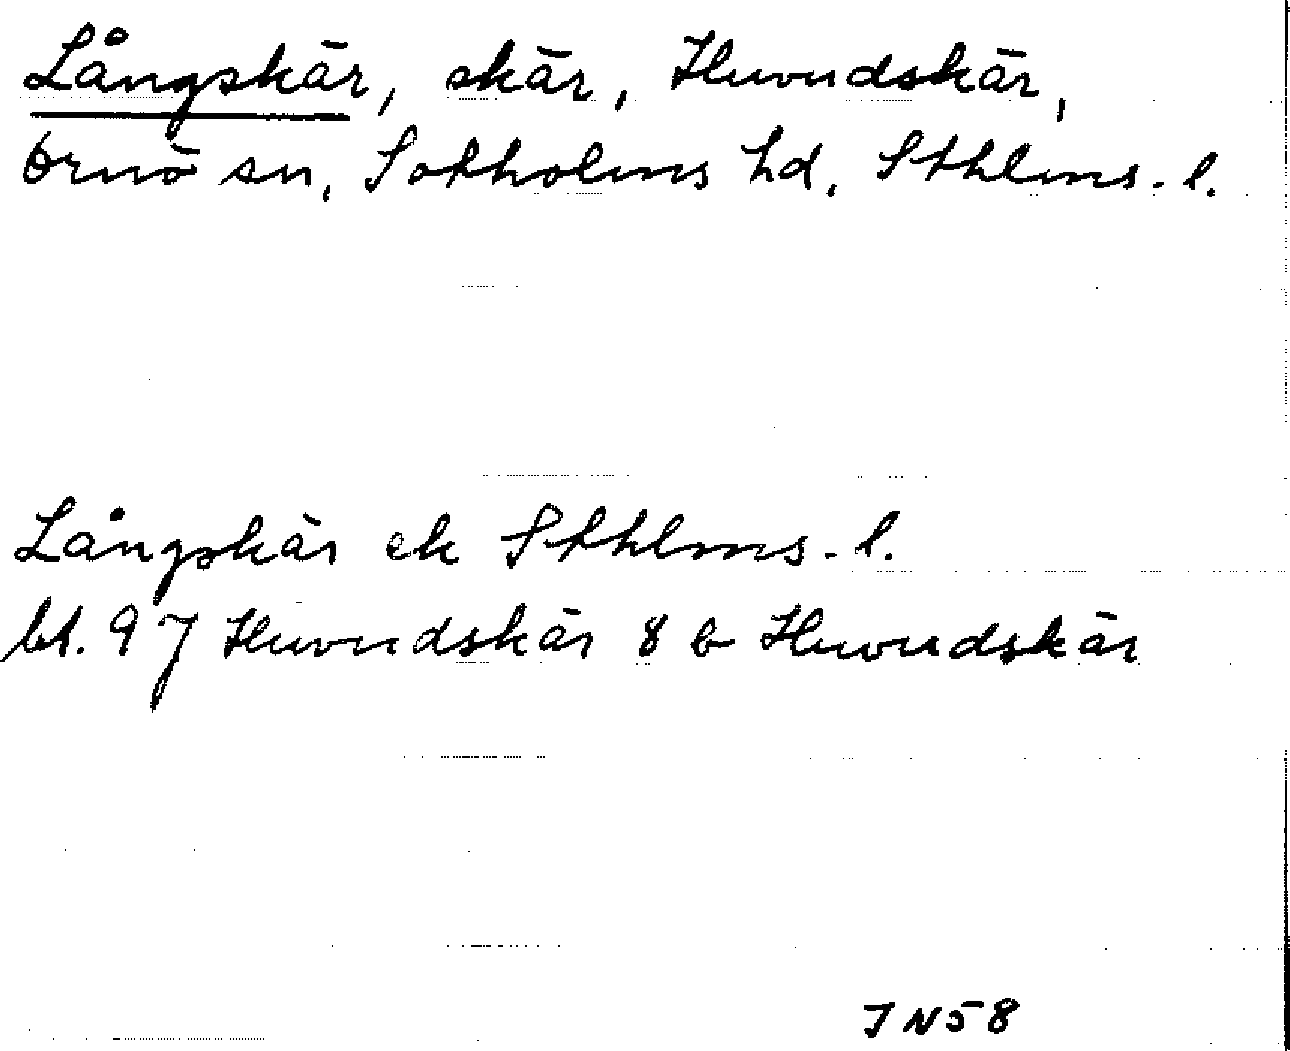 Långskär, skär, Huvudskär,
Ornö sn, Sotholms hd, Sthlms. l.
Långskär ek Sthlms. l.
bl. 97 Huvudskär 8 b Huvudskär
JN58